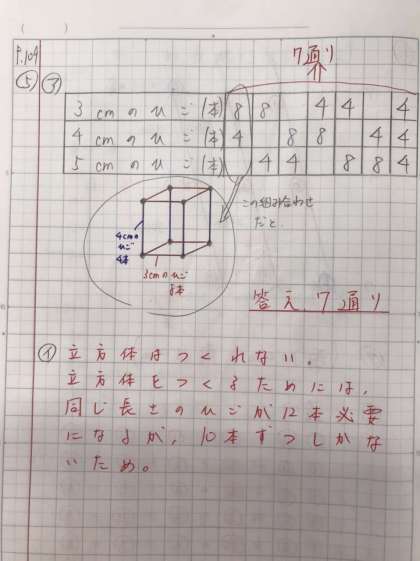 ( )
P.104
7通り
⑤ ㋐
3cmのひご(本) 8 8 4 4 4
4cmのひご(本) 4 8 8 4 4
5cmのひご(本) 4 4 8 8 4
この組み合わせ
だと。
4cmの
ひご
4本
3cmのひご
8本
答え 7通り
㋑ 立方体はつくれない。
立方体をつくるためには、
同じ長さのひごが12本必要
になるが、10本ずつしかな
いため。